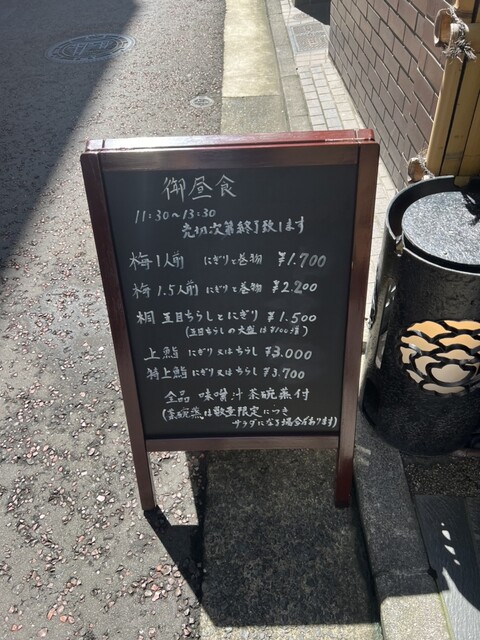 御昼食
11:30~13:30
売切次第終了致します
梅1人前 にぎりと巻物 ¥1.700
梅1.5人前 にぎりと巻物 ¥2.200
桐 五目ちらしとにぎり ¥1.500
(五目ちらしの大盛は¥100増)
上鮨 にぎり又はちらし ¥3.000
特上鮨 にぎり又はちらし ¥3.700
全品 味噌汁茶碗蒸付
(茶碗蒸は数量限定につき
サラダになる場合があります)